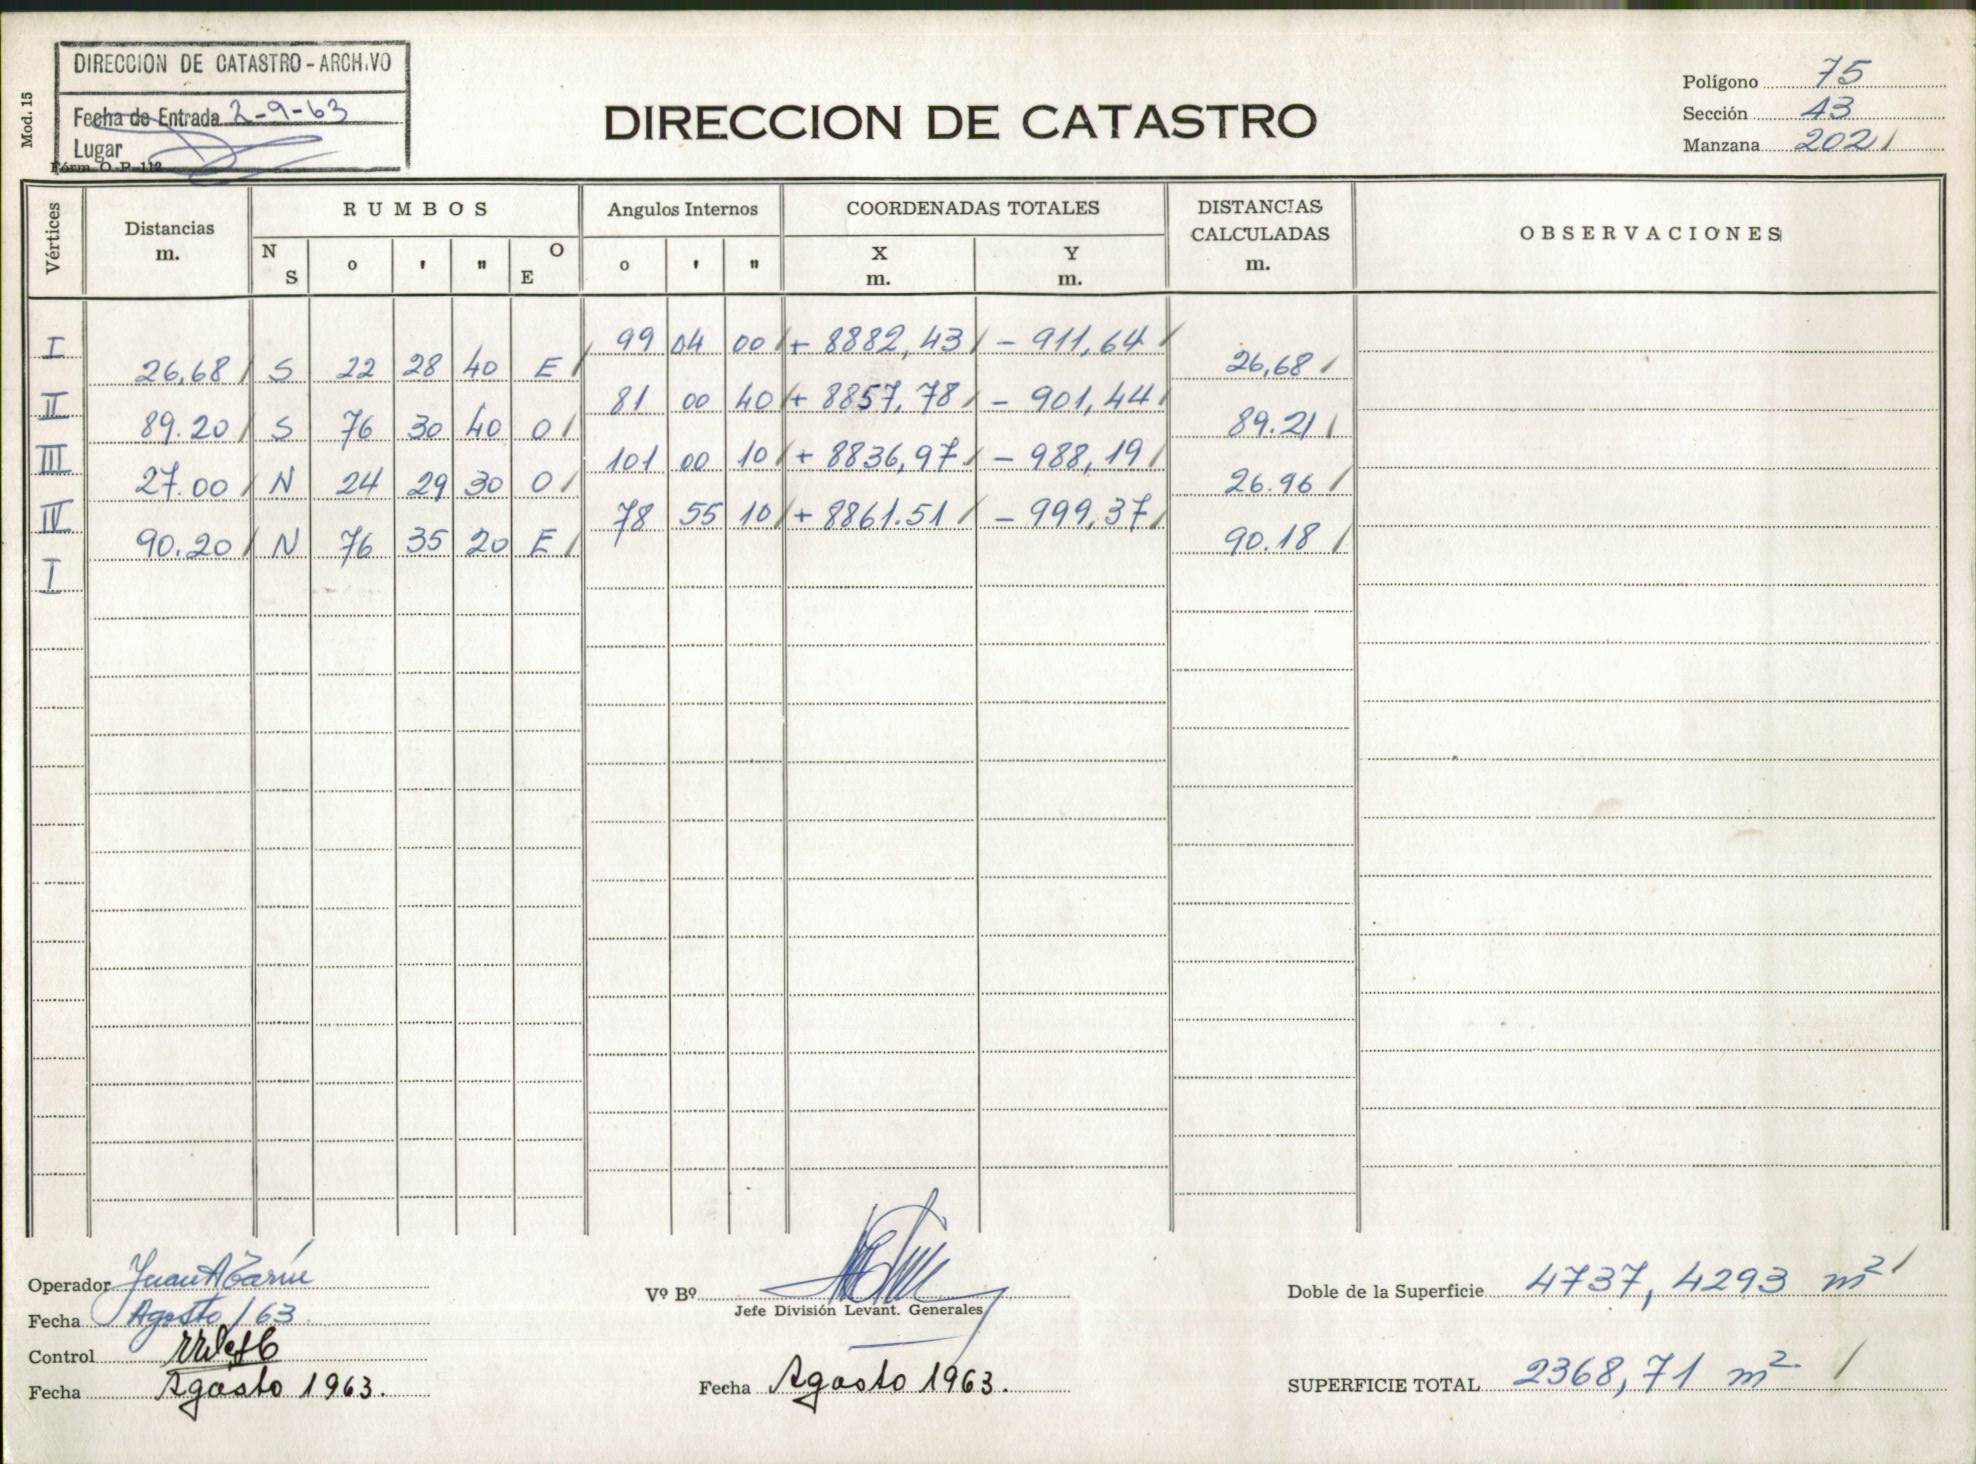 DIRECCION DE CATASTRO - ARCH.VO
Fecha de Entrada 2-9-63
Lugar
Mod. 15
Form. O. P. 112
DIRECCION DE CATASTRO
Polígono 75
Sección 43
Manzana 2021
Vértices
Distancias
m.
R U M B O S
N
S
o
'
"
O
E
Angulos Internos
o
'
"
COORDENADAS TOTALES
X
m.
Y
m.
DISTANCIAS
CALCULADAS
m.
O B S E R V A C I O N E S
I 99 04 00 + 8882,43 - 911,64
26,68 S 22 28 40 E 26,68
II 81 00 40 + 8857,78 - 901,44
89.20 S 76 30 40 O 89.21
III 101 00 10 + 8836,97 - 988,19
27.00 N 24 29 30 O 26.96
IV 78 55 10 + 8861.51 - 999,37
90.20 N 76 35 20 E 90.18
I
Operador
Fecha Agosto/63
Control
Fecha Agosto 1963.
Vº Bº
Jefe División Levant. Generales
Fecha Agosto 1963.
Doble de la Superficie 4737,4293 m²
SUPERFICIE TOTAL 2368,71 m²